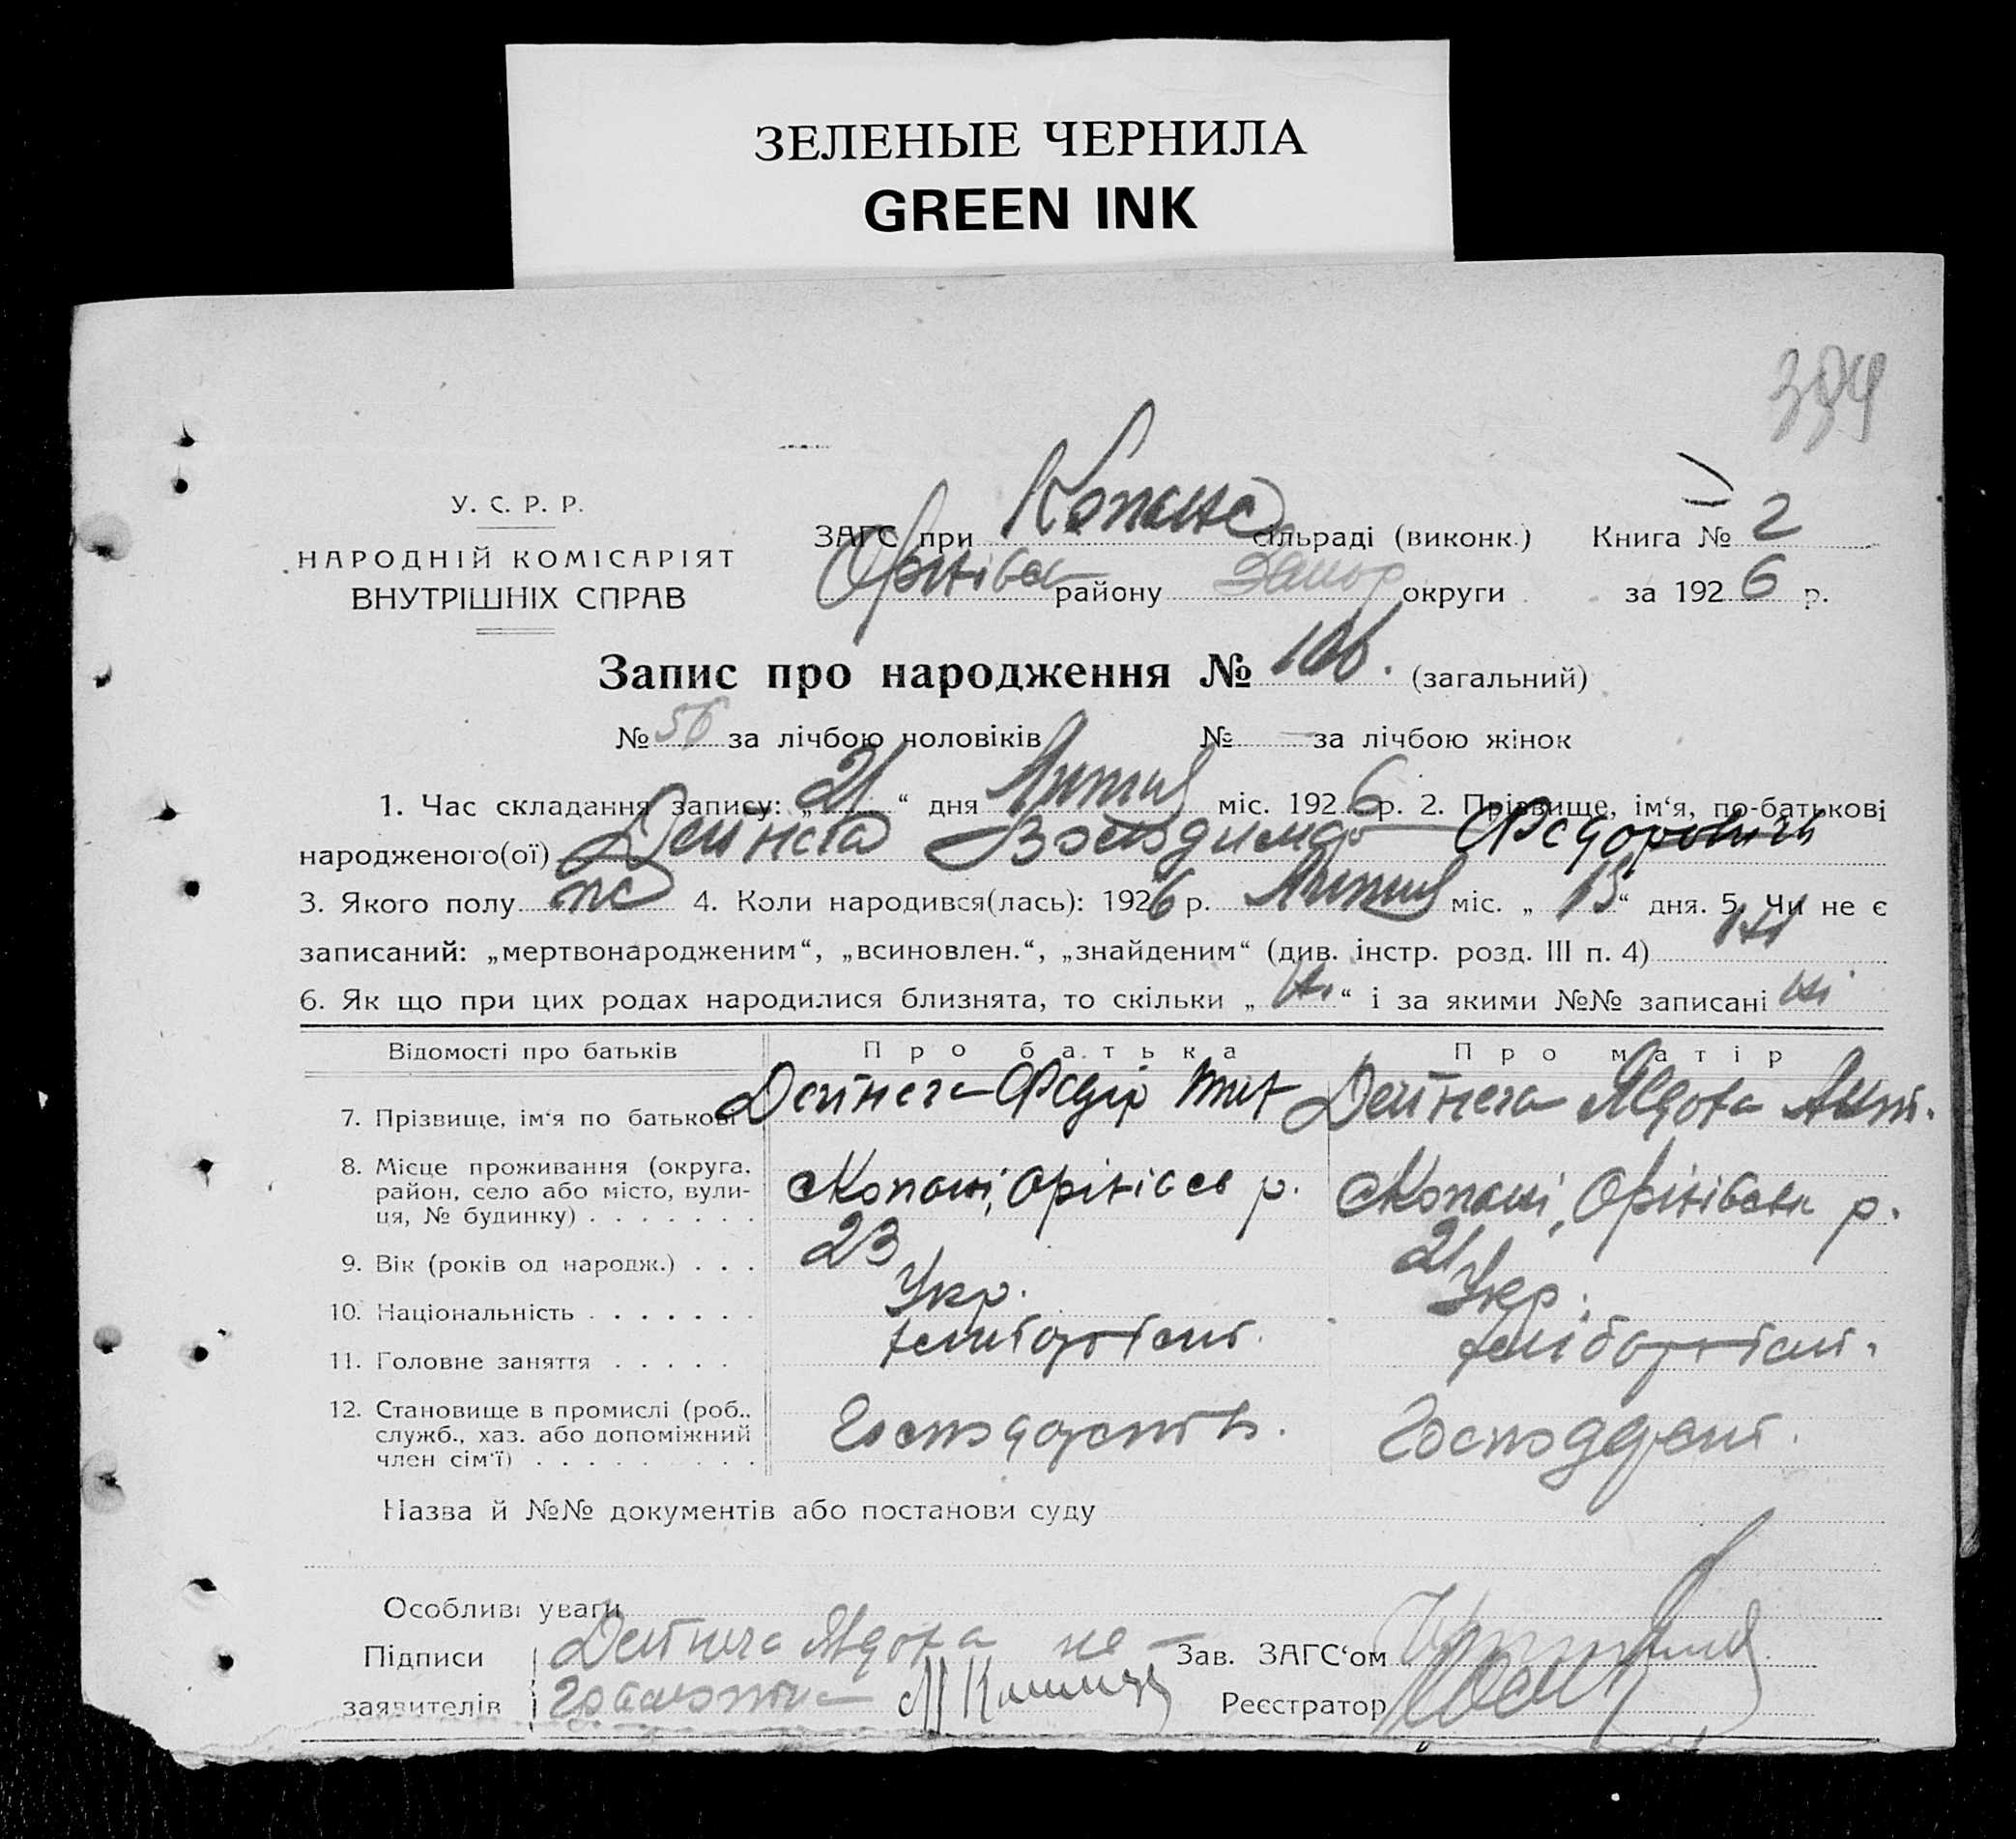 ЗЕЛЕНЫЕ ЧЕРНИЛА
GREEN INK
394
У. С. Р. Р.
НАРОДНІЙ КОМІСАРІЯТ
ВНУТРІШНІХ СПРАВ
ЗАГС при Копанс сільраді (виконк.) Книга № 2
Оріхівск району Запор округи за 1926 р.
Запис про народження № 106. (загальний)
№ 56 за лічбою чоловіків № — за лічбою жінок
1. Час складання запису: „21“ дня Липня міс. 1926 р. 2. Прізвище, ім‘я, по-батькові
народженого(ої) Дейнега Володимир Федорович
3. Якого полу 4. Коли народився(лась): 1926 р. Липня міс. „15“ дня. 5. Чи не є
записаний: „мертвонародженим“, „всиновлен.“, „знайденим“ (див. інстр. розд. III п. 4) ні
6. Як що при цих родах народилися близнята, то скільки „ні“ і за якими №№ записані ні
Відомості про батьків Про батька Про матір
7. Прізвище, ім‘я по батькові Дейнега Федір Дейнега Явдоха
8. Місце проживання (округа, район, село або місто, вулиця, № будинку) . . . . . . . Копані, Оріхівсь р. Копані, Оріхівськ р.
9. Вік (років од народж.) . . . 23 21
10. Національність . . . . . . . Укр. Укр.
11. Головне заняття . . . . . хліборобств. хліборобств.
12. Становище в промислі (роб., служб., хаз. або допоміжний член сім‘ї) . . . . . . . . .
Назва й №№ документів або постанови суду
Особливі уваги
Підписи Дейнега Явдоха не Зав. ЗАГС‘ом
заявителів Реєстратор